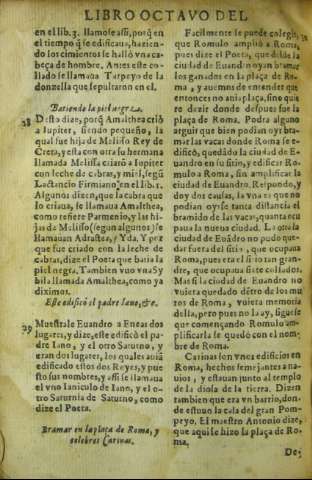 LIBRO OCTAVO DEL
en el lib. 3. llamose assi, porq̃ en
el tiempo q̃ se edificaua, haziendo
los cimientos se hallò vna cabeça
de hombre. Antes este collado
se llamaua Tarpeyo de la
donzella que sepultaron en el.
Batiendo la piel negra.
28 Desto dize, porq̃ Amalthea criò
a Iupiter, siendo pequeño, la
qual fue hija de Melisso Rey de
Creta, y esta con otra su hermana
llamada Melissa criarõ a Iupiter
con leche de cabras, y miel, segũ
Lactancio Firmiano en el lib. 1.
Algunos dizen, que la cabra que
lo criaua, se llamaua Amalthea,
como refiere Parmenio, y las hijas
de Melisso (segun algunos) se
llamauan Adrastea, y Yda. Y porque
fue criado con la leche de
cabras, dize el Poeta que batia la
piel negra. Tambien vuo vna Sybila
llamada Amalthea, como ya
diximos.
Este edificò el padre Iano, &c.
29 Muestrale Euandro a Eneas dos
lugares, y dize, este edificò el padre
Iano, y el otro Saturno, y
eran dos lugares, los quales auiã
edificado estos dos Reyes, y puesto
sus nombres, y assi se llamaua
el vno Ianiculo de Iano, y el otro
Saturnia de Saturno, como
dize el Poeta.
Bramar en la plaça de Roma, y
celebres Carinas.
Facilmente se puede colegir,
que Romulo ampliò a Roma,
pues dize el Poeta, que desde la
ciudad de Euandro oyan bramar
los ganados en la plaça de Roma,
y auemos de entender que
entonces no aui plaça, sino quiere
dezir donde despues fue la
plaça de Roma. Podra alguno
arguir que bien podian oyr bramar
las vacas donde Roma se edificò,
quedãdo la ciudad de Euandro
en su sitio, y edificar Romulo
a Roma, sin amplificar la
ciudad de Euandro. Respondo, y
doy dos causas, la vna es que no
podian oyrse tanta distancia el
bramido de las vacas, quanta ocupaua
la nueua ciudad. La otra la
ciudad de Euãdro no pudo quedar
fuera del sitio, que ocupaua
Roma, pues era el sitio tan grande,
que ocupaua siete collados.
Mas si la ciudad de Euandro no
vuiera quedado dẽtro de los muros
de Roma, vuiera memoria
della, pero pues no la ay, siguese
que començando Romulo amplificarla
se quedò con el nombre
de Roma.
Carinas son vnos edificios en
Roma, hechos semejantes a nauios,
y estauan junto al templo
de la diosa de la tierra. Dizen
tambien que era vn barrio, donde
estuuo la casa del gran Pompeyo.
El maestro Antonio dize,
que aqui se hizo la plaça de Roma.
De-